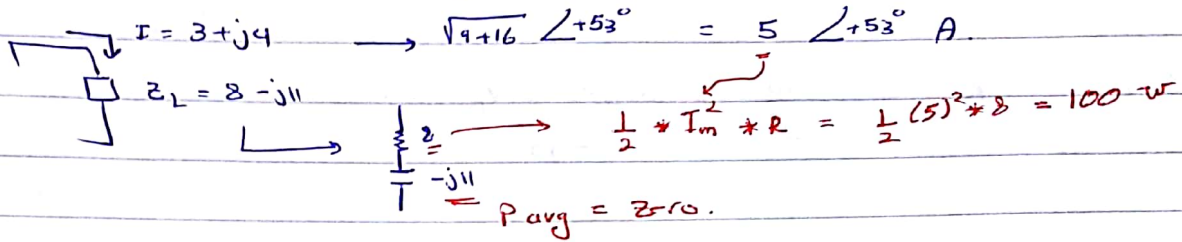 I = 3+j4 → √9+16 ∠+53° = 5 ∠+53° A.
Z_L = 8 -j11
8 → 1/2 * I_m^2 * R = 1/2 (5)^2 * 8 = 100 w
-j11
P avg = Zero.